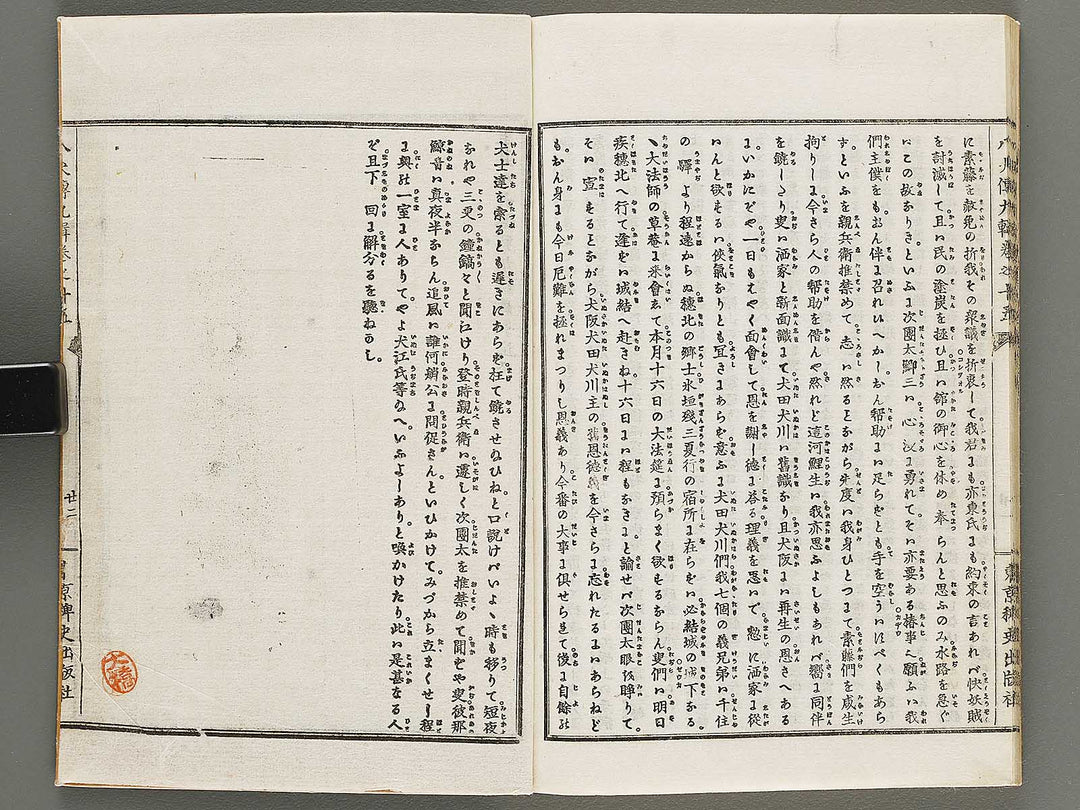 に素藤を赦免の折我その衆議を折衷して我君にも亦東氏にも約束の言あれバ快妖賊
を討滅して且ハ民の塗炭を拯ひ且ハ館の御心を休め奉らんと思ふのみ水路を急ぐ
ハこの故なりきといふに次團太鯽三ハ心没に勇れてそハ亦要ある椿事へ願ふハ我
們主僕をもおん伴に召れいへかしおん帮助にハ足らずとも手を空うハほべくもあら
ずといふを親兵衛推禁めて志ハ然るとながら先度ハ我身ひとつにて素藤們を咸生
拘りしに今さら人の帮助を借んや然れど這河鯉生ハ我亦思ふよしもあれバ嚮に同伴
を饒しゝり叟ハ洒家と新面識にて犬田犬川ハ舊識なり且犬阪にハ再生の恩さへある
にいかにどや一日もはやく面會して恩を謝し德に荅る理義を思ハで愁に洒家に從
ハんと欲するハ俠氣なりとも冝しきにあらず意ふに犬田犬川們我七個の義兄弟ハ千住
の驛より程遠からぬ穗北の郷士氷垣殘三夏行の宿所に在らずハ必結城の城下なる
丶大法師の草菴に來會ゐて本月十六日の大法莚に預らまく欲するならん叟們ハ明日
疾穗北へ行て逢ずハ城結へ赴きね十六日にハ程もなきにと諭せバ次團太眼を睜りて
そハ宣するとながら犬阪犬田犬川主の義恩德義を今さらに忘れたるにハあらねど
もおん身にも今日厄難を拯れまつりし恩義あり今番の大事に倶せられて後に自餘の
犬士達を索るとも遲きにあらず枉て饒させぬひねと口説けバいよゝ時も移りて短夜
なれや三更の鐘鏑々と聞江けり登時親兵衛ハ遽しく次團太を推禁めて聞ずや叟彼那
鯨音ハ真夜半ならん追風ハ誰何綃公に問促さんといひかけてみづから立まくせし程
に與の一室に人ありてやよ犬江氏等ぬへいふよしありと喚かけたり此ハ是甚なる人
ど且下回に解分るを聽ねかし。
廿二
東京稗史出版社